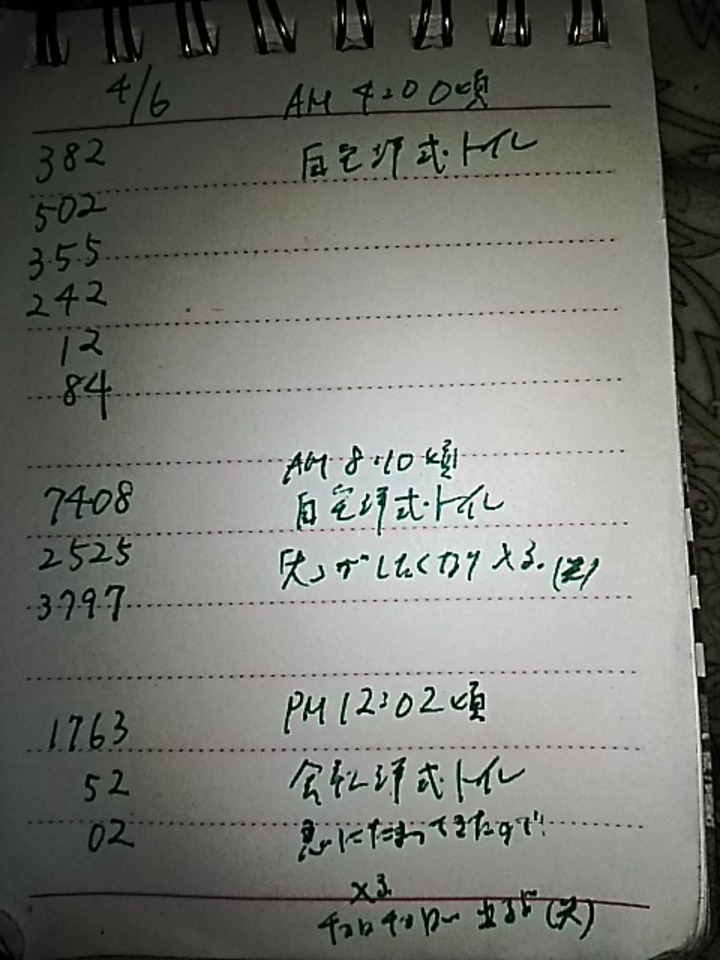 4/6 AM 4:00頃
382 自宅洋式トイレ
502
355
242
12
84
AM 8:10頃
7408 自宅洋式トイレ
2525 がしたくなり する。(笑)
3797
PM 12:02頃
1763
52 会社洋式トイレ
02 急にたまってきたので
する
チョロチョロー 出るよ(笑)